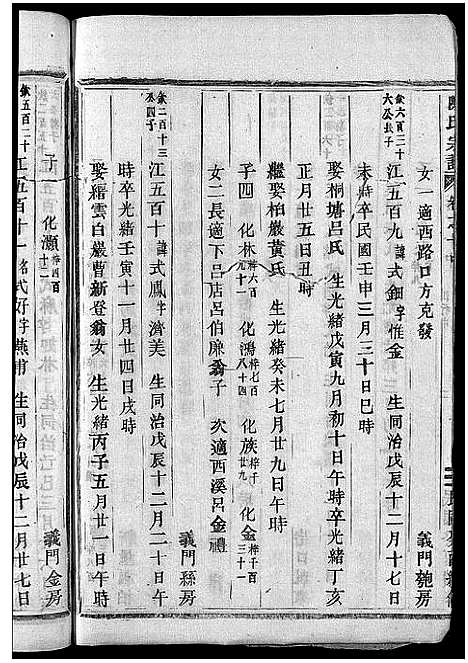 陳氏宗譜
女一適西路口方克發 義門範房
欽六百三十
六公長子
江五百九諱式鈿字惟金 生同治戊辰十二月十七日
未時卒民國壬申三月三十日巳時
娶桐塘呂氏 生光緒戊寅九月初十日午時卒光緒丁亥
正月廿五日丑時
繼娶柏巖黃氏 生光緒癸未七月廿九日午時
子四 化林梓六百九十一 化鴻梓七百八十四 化族梓千廿九 化金梓千百三十一
女二長適下呂店呂伯廉翁子 次適西溪呂金禮
義門孫房
欽二百十三
公四子
江五百十諱式鳳字濟美 生同治戊辰十二月二十日午
時卒光緒壬寅十一月廿四日戌時
娶縉雲白巖曹新登翁女 生光緒丙子五月廿一日午時
化灝梓四百十二 義門金房
欽五百二十
江五百十一諱式好字蕉甫 生同治戊辰十二月廿七日